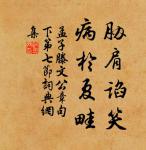 胁肩谄笑
病於夏畦
孟子滕文公章句
下第七節詞典網
集